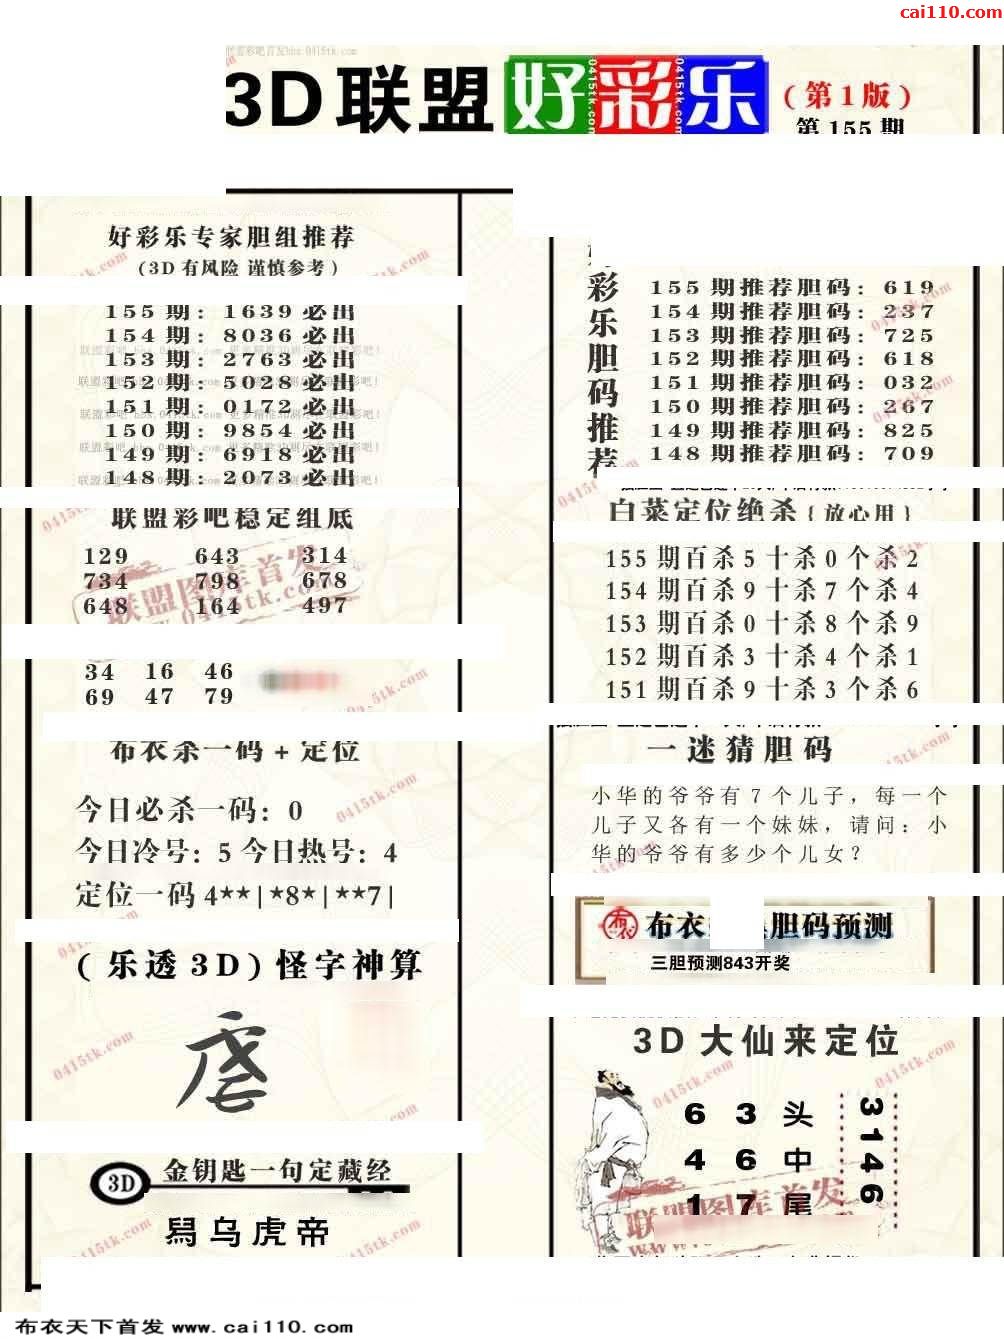 cai110.com
3D联盟好彩乐
(第1版)
第155期
好彩乐专家胆组推荐
(3D有风险 谨慎参考)
155期: 1639必出
154期: 8036必出
153期: 2763必出
152期: 5028必出
151期: 0172必出
150期: 9854必出
149期: 6918必出
148期: 2073必出
联盟彩吧稳定组底
129 643 314
734 798 678
648 164 497
34 16 46
69 47 79
布衣杀一码+定位
今日必杀一码: 0
今日冷号: 5 今日热号: 4
定位一码4**|*8*|**7|
(乐透3D)怪字神算
3D
金钥匙一句定藏经
舄乌虎帝
彩乐胆码推荐
155期推荐胆码: 619
154期推荐胆码: 237
153期推荐胆码: 725
152期推荐胆码: 618
151期推荐胆码: 032
150期推荐胆码: 267
149期推荐胆码: 825
148期推荐胆码: 709
白菜定位绝杀{放心用}
155期百杀5十杀0个杀2
154期百杀9十杀7个杀4
153期百杀0十杀8个杀9
152期百杀3十杀4个杀1
151期百杀9十杀3个杀6
一迷猜胆码
小华的爷爷有7个儿子，每一个
儿子又各有一个妹妹，请问：小
华的爷爷有多少个儿女？
布衣
布衣 胆码预测
三胆预测843开奖
3D大仙来定位
6 3 头
4 6 中
1 7 尾
3146
联盟图库首发
布衣天下首发 www.cai110.com